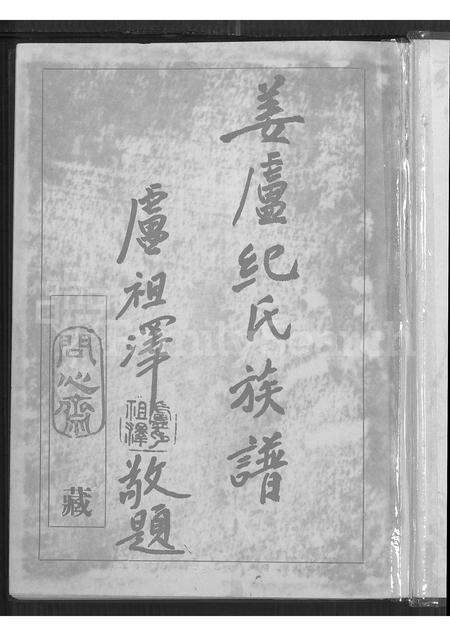 姜盧紀氏族譜
盧祖澤敬題
盧祖澤
問心齋
藏